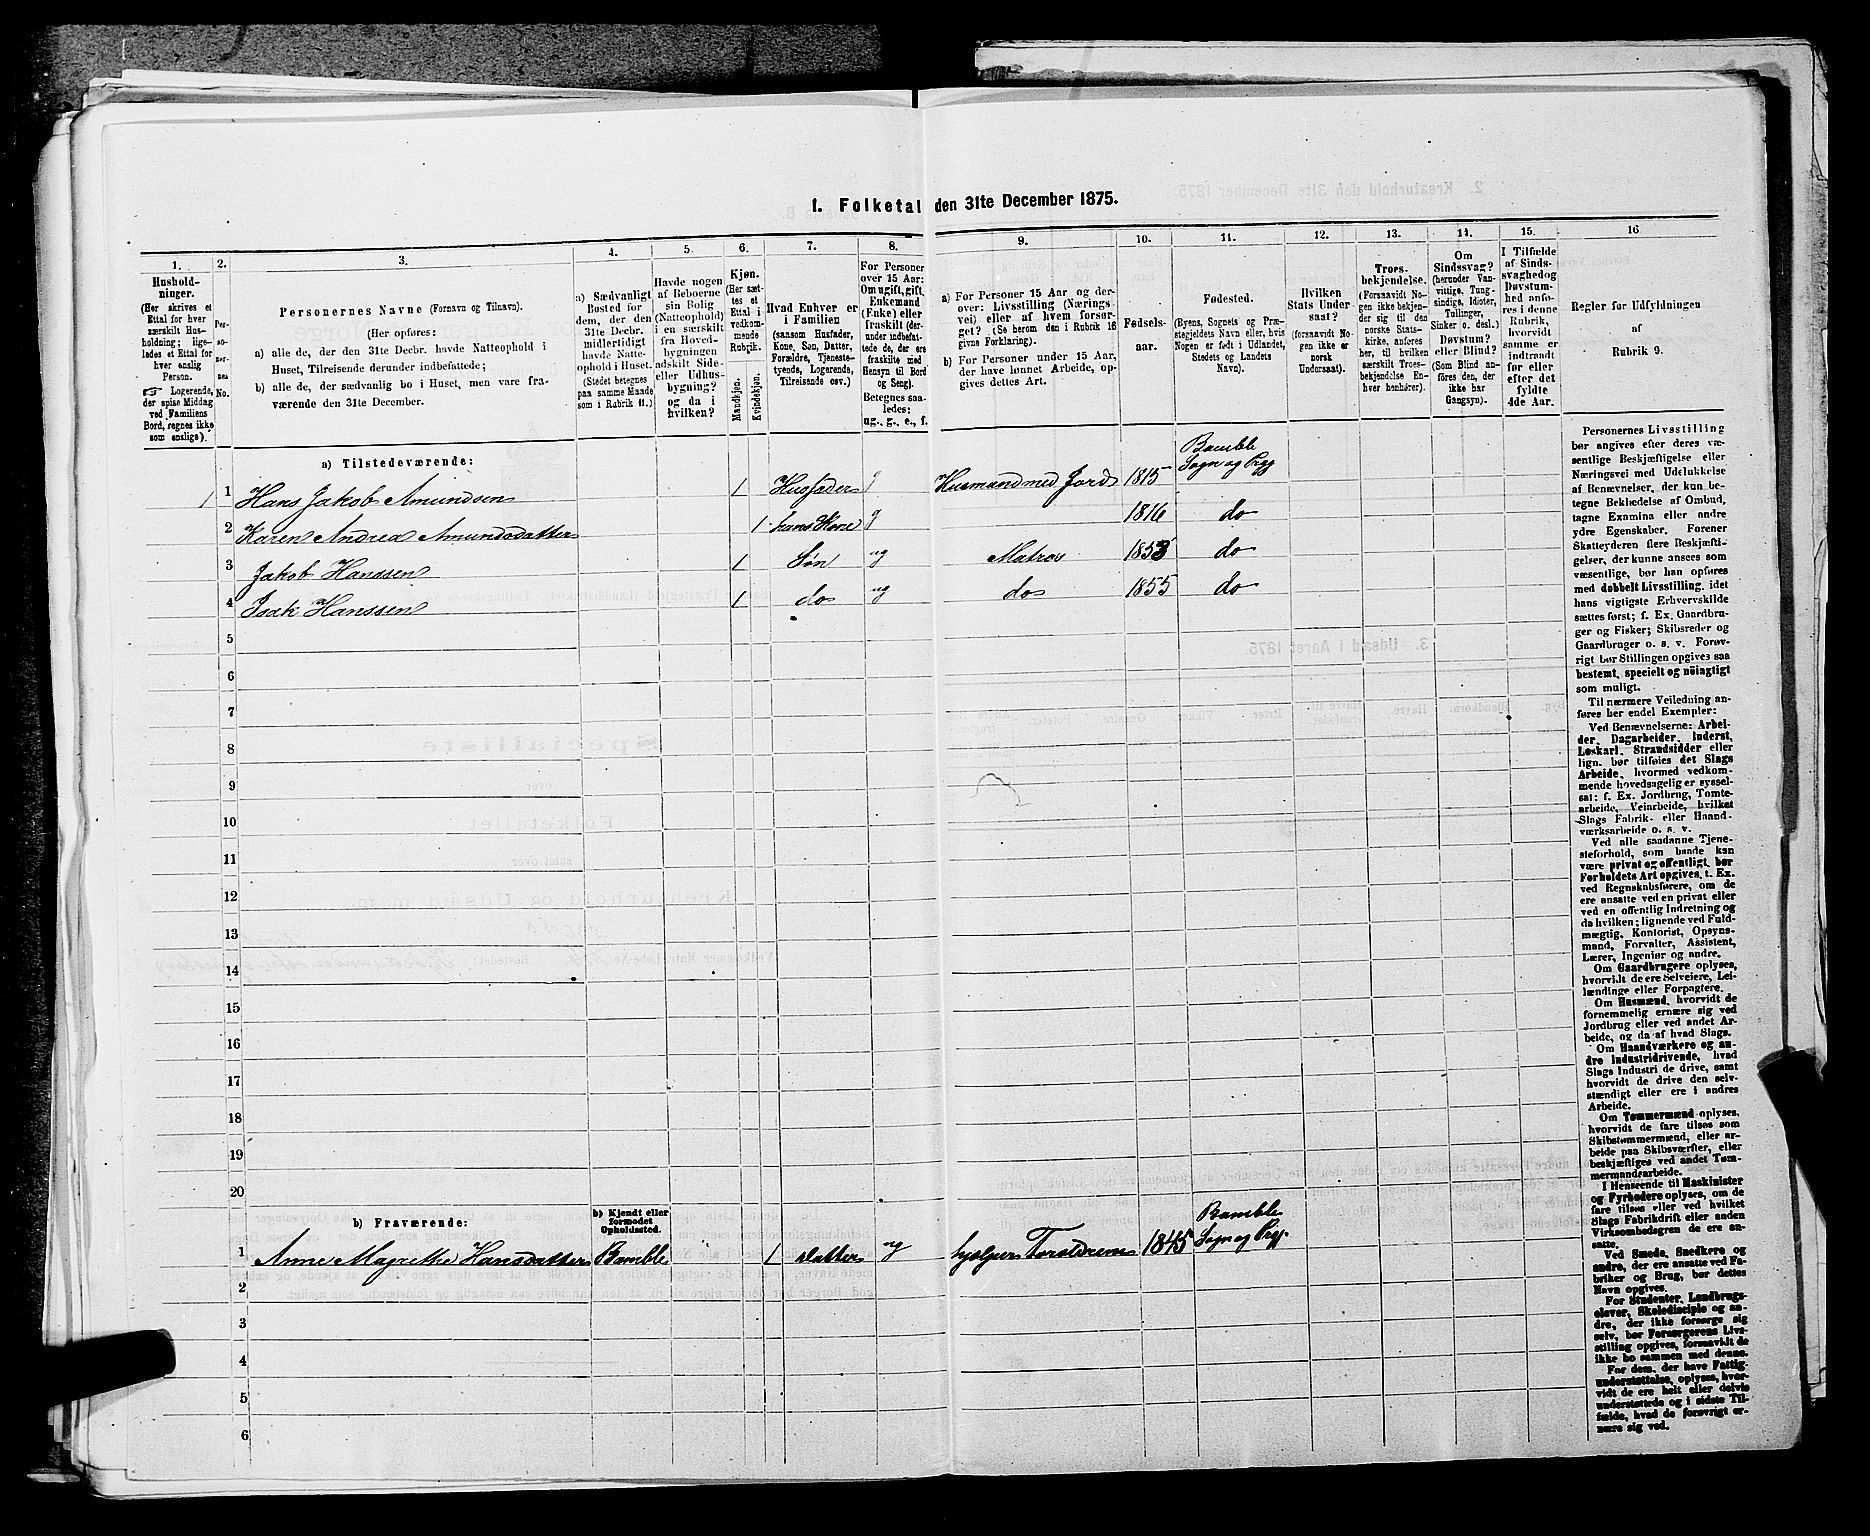 1. Folketal den 31te December 1875.
1.
Husholdninger.
(Her skrives et
Ettal for hver
særskilt Husholdning;
ligeledes et Ettal for
hver enslig
Person.
☞ Logerende,
der spise Middag
ved Familiens
Bord, regnes ikke
som enslige).
2.
Personernes
No.
3.
Personernes Navne (Fornavn og Tilnavn).
(Her opføres:
a) alle de, der den 31te Decbr. havde Natteophold i
Huset, Tilreisende derunder indbefattede;
b) alle de, der sædvanlig bo i Huset, men vare fraværende
den 31te December.
4.
a) Sædvanligt
Bosted for
dem, der den
31te Decbr.
midlertidigt
havde Natteophold
i Huset.
(Stedet betegnes
paa samme Maade
som i Rubrik 11.)
5.
Havde nogen
af Beboerne
sin Bolig
(Natteophold)
i en særskilt
fra Hovedbygningen
adskilt Side-
eller Udhusbygning?
og da i
hvilken?
6.
Kjøn.
(Her sættes
et
Ettal i
vedkommende
Rubrik.
Mandkjøn.
Kvindekjøn.
7.
Hvad Enhver er
i Familien
(saasom Husfader,
Kone, Søn, Datter,
Forældre, Tjenestetyende,
Logerende,
Tilreisende osv.)
8.
For Personer
over 15 Aar:
Om ugift, gift,
Enkemand
(Enke) eller
fraskilt (derunder
indbefattede
de, der ere
fraskilte med
Hensyn til Bord
og Seng).
Betegnes saaledes:
ug., g., e., f.
9.
a) For Personer 15 Aar og derover:
Livsstilling (Næringsvei)
eller af hvem forsørget?
(Se herom den i Rubrik 16
givne Forklaring).
b) For Personer under 15 Aar,
der have lønnet Arbeide, opgives
dettes Art.
10.
Fødselsaar.
11.
Fødested.
(Byens, Sognets og Præstegjeldets
Navn eller, hvis
Nogen er født i Udlandet,
Stedets og Landets
Navn).
12.
Hvilken
Stats Undersaat?
(forsaavidt Nogen
ikke er
norsk
Undersaat).
13.
Troesbekjendelse.
(Forsaavidt Nogen
ikke bekjender
sig til den
norske Statskirke,
anføres
her, til hvilken
særskilt Troesbekjendelse
Enhver
henhører).
14.
Om
Sindssvag?
(herunder Vanvittige,
Tungsindige,
Idioter,
Tullinger,
Sinker o. desl.)
Døvstum?
eller Blind?
(Som Blind anføres
den, der
ikke har
Gangsyn).
15.
I Tilfælde
af Sindssvaghed
og
Døvstumhed
anføres
i denne
Rubrik,
hvorvidt
samme er
indtraadt
før eller
efter det
fyldte
4de Aar.
16
Regler for Udfyldningen
af
Rubrik 9.
a) Tilstedeværende:
1 1 Hans Jakob Amundsen 1 Husfader g Husmand med Jord 1815 Bamble Sogn og Prgj
2 Karen Andrea Amundsdatter 1 hans Kone g 1816 do
3 Jakob Hanssen 1 Søn ug Matros 1853 do
4 Isak Hanssen 1 do ug do 1855 do
5
6
7
8
9
10
11
12
13
14
15
16
17
18
19
20
b) Fraværende:
b) Kjendt eller
formodet
Opholdssted.
1 Anne Magrethe Hansdatter Bamble 1 datter ug hjelper Forældrene 1845 Bamble Sogn og Prgj.
2
3
4
5
6
Personernes Livsstilling
bør angives efter deres væsentlige
Beskjæftigelse eller
Næringsvei med Udelukkelse
af Benævnelser, der kun betegne
Beklædelse af Ombud,
tagne Examina eller andre
ydre Egenskaber. Forener
Skatteyderen flere Beskjæftigelser,
der kunne ansees som
væsentlige, bør han opføres
med dobbelt Livsstilling, idet
hans vigtigste Erhvervskilde
sættes først; f. Ex. Gaardbruger
og Fisker; Skibsreder og
Gaardbruger o. s. v. Forøvrigt
bør Stillingen opgives saa
bestemt, specielt og nöiagtigt
som muligt.
Til nærmere Veiledning anføres
her endel Exempler:
Ved Benævnelserne: Arbeider,
Dagarbeider, Inderst,
Løskarl, Strandsidder eller
lign. bør tilføies det Slags
Arbeide, hvormed vedkommende
hovedsagelig er sysselsat:
f. Ex. Jordbrug, Tomtearbeide,
Veiarbeide, hvilket
Slags Fabrik- eller Haandværksarbeide
o. s. v.
Ved alle saadanne Tjenesteforhold,
som baade kan
være privat og offentligt, bør
Forholdets Art opgives, f. Ex.
ved Regnskabsførere, om de
ere ansatte ved en privat eller
ved en offentlig Indretning og
da hvilken; lignende ved Fuldmægtig,
Kontorist, Opsynsmand,
Forvalter, Assistent,
Lærer, Ingeniør og andre.
Om Gaardbrugere oplyses,
hvorvidt de ere Selveiere, Leilændinge
eller Forpagtere.
Om Husmænd, hvorvidt de
fornemmelig ernære sig ved
Jordbrug eller ved andet Arbeide,
og da af hvad Slags.
Om Haandværkere og andre
Industridrivende, hvad
Slags Industri de drive, samt
hvorvidt de drive den selvstændigt
eller ere i andres
Arbeide.
Om Tømmermænd oplyses,
hvorvidt de fare tilsøs som
Skibstømmermænd, eller arbeide
paa Skibsværfter, eller
beskjæftiges ved andet Tømmermandsarbeide.
I Henseende til Maskinister
og Fyrbødere oplyses, om de
fare tilsøs eller ved hvilket
Slags Fabrikdrift eller anden
Virksomhedsgren de ere ansatte.
Ved Smede, Snedkere og
andre, der ere ansatte ved Fabriker
og Brug, bør dettes
Navn opgives.
For Studenter, Landbrugselever,
Skoledisciple og andre,
der ikke forsørge sig
selv, bør Forsørgerens Livsstilling
opgives, forsaavidt de
ikke bo sammen med denne.
For dem, der have Fattigunderstøttelse,
oplyses, hvorvidt
de ere helt eller delvis
understøttede og i sidste Tilfælde,
hvad de forøvrigt ernære
sig ved.